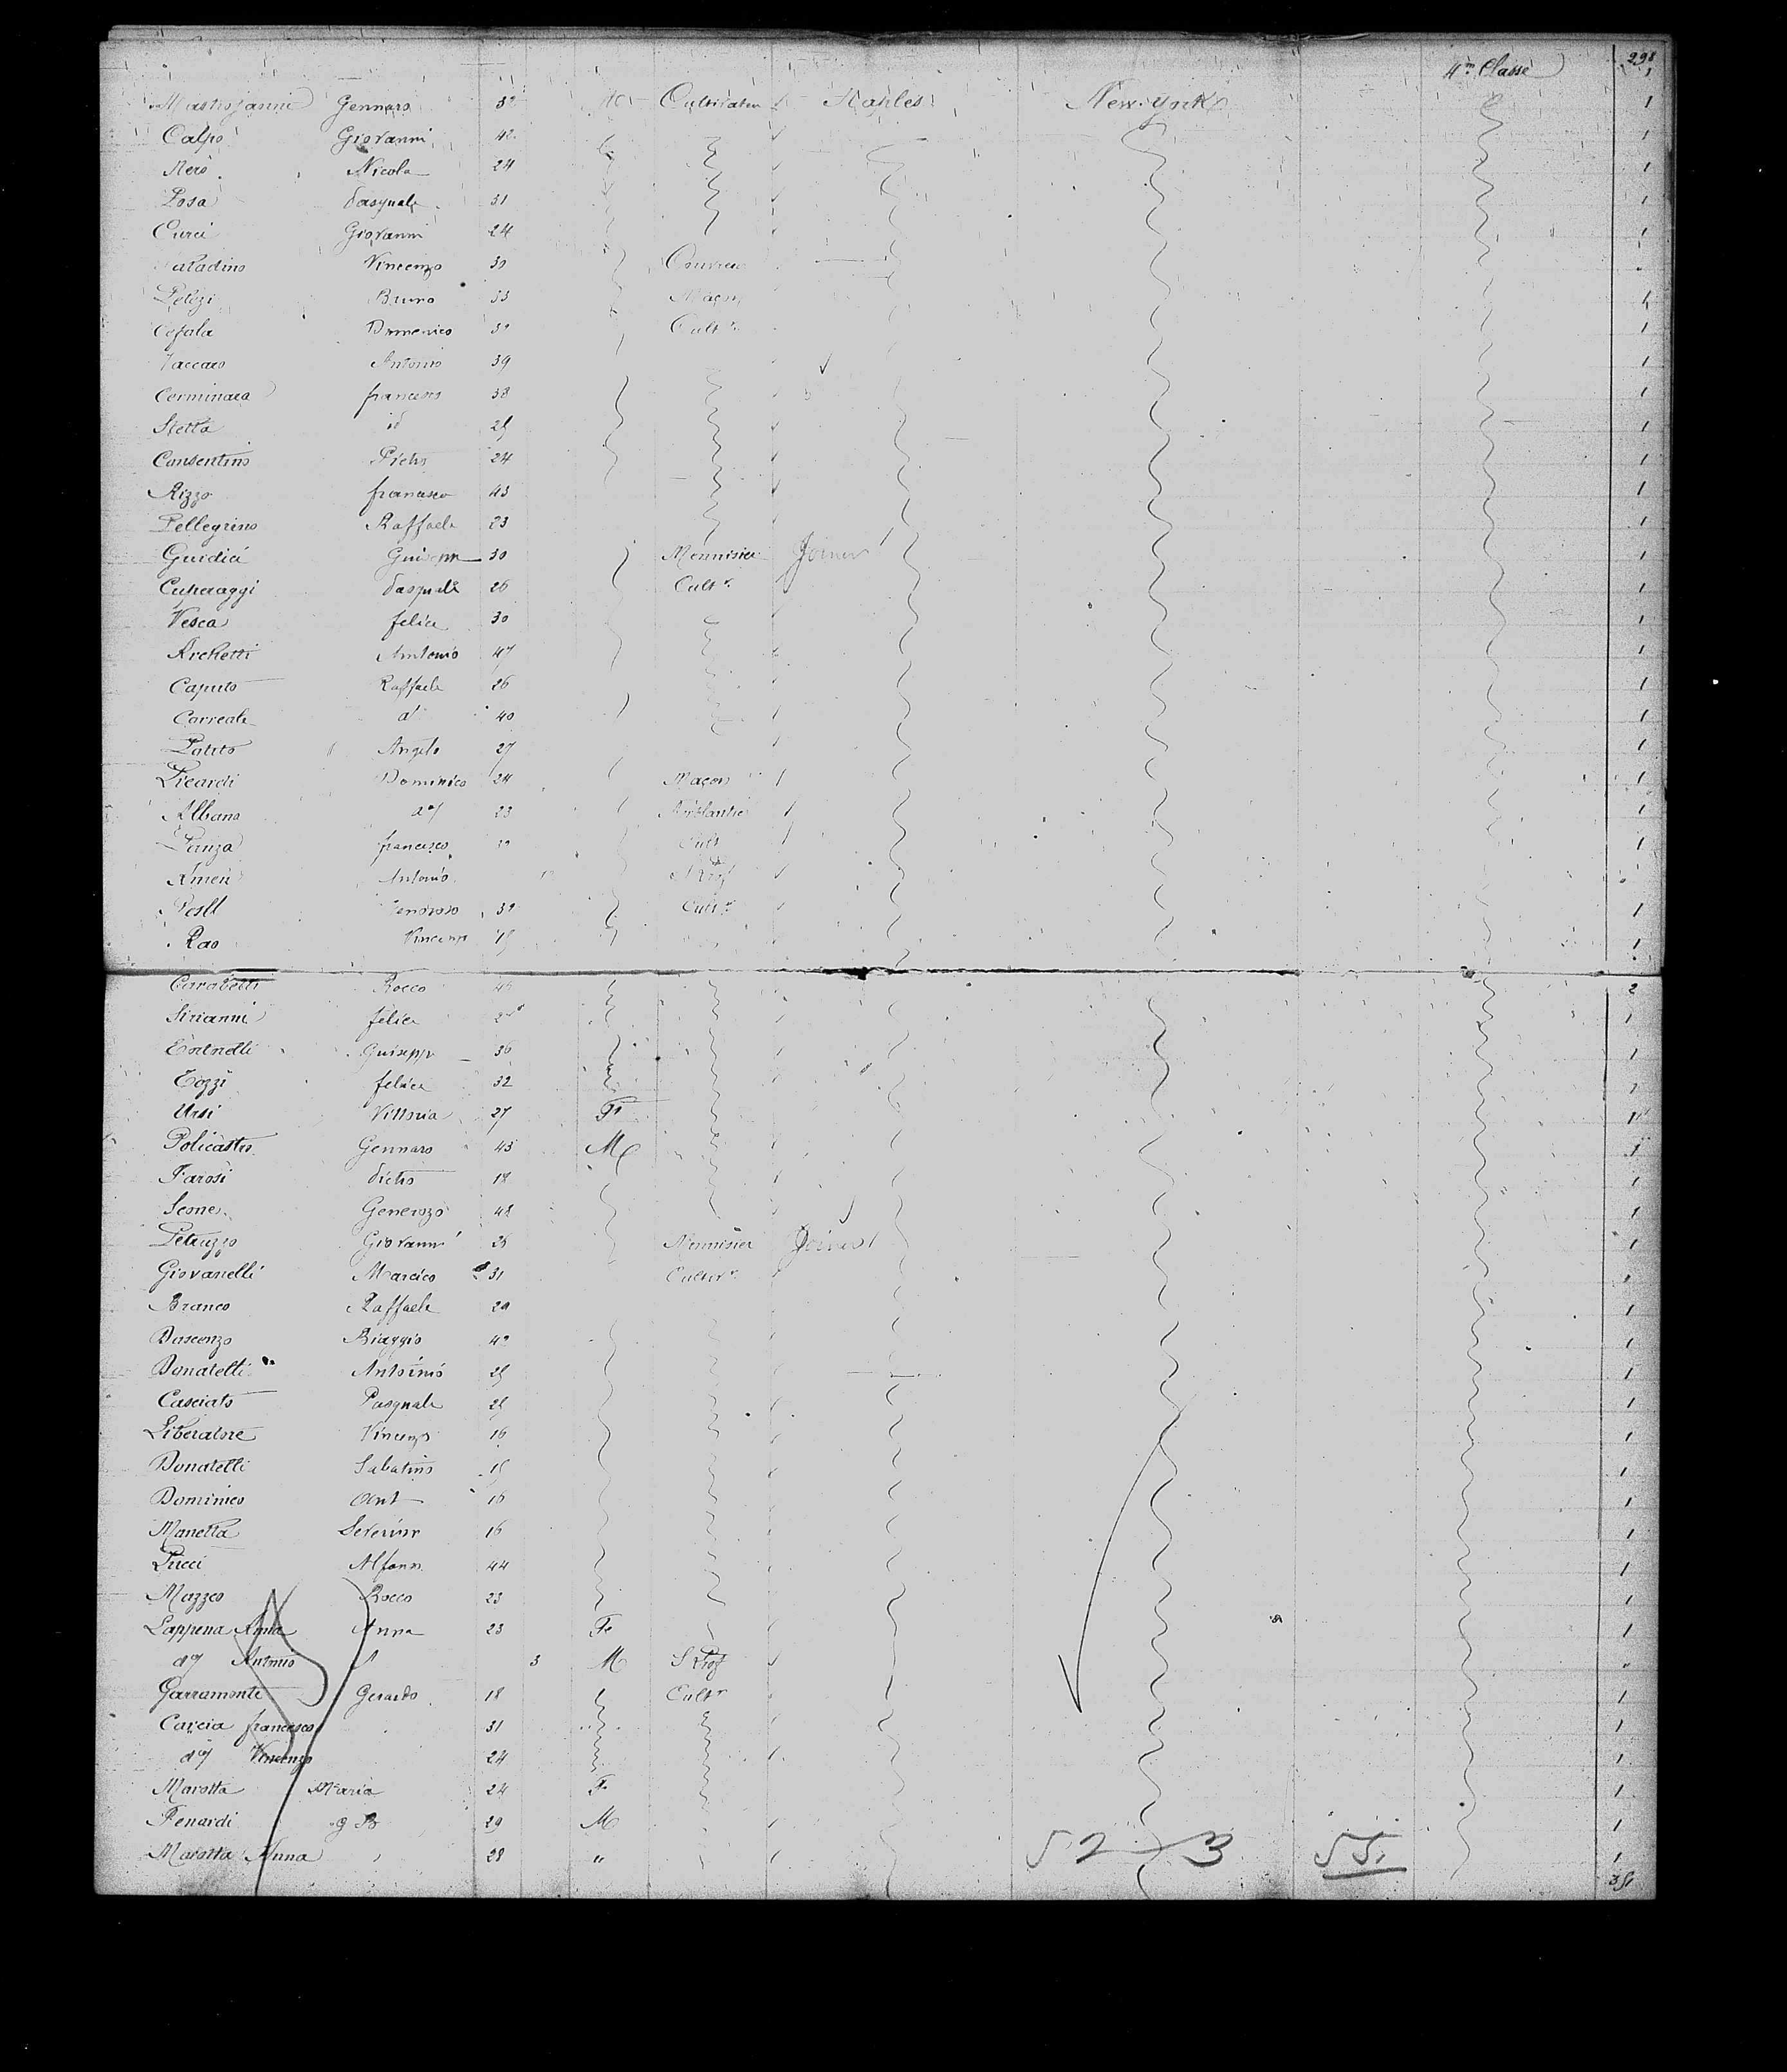 4.m Classe 298
1
Mastrojanni Gennaro 32 M Cultivateur Naples New-York 1
Calpo Giovanni 42 1
Nero Nicola 24 1
Posa Pasquale 31 1
Curci Giovanni 24 1
Paladino Vincenzo 30
Pelezi Bruno 33 Maçon 1
Cefala Domenico 32 Cult.r 1
Vaccaro Antonio 39 1
Cerminara francesco 38 1
Stetta id 25 1
Consentino Pietro 24 1
Rizzo francesco 43 1
Pellegrino Raffaele 23 1
Guidici Guisepp 30 Mennisier Joiner 1
Pasquale 26 Cult.r 1
Vesca felice 30 1
Archetti Antonio 47 1
Caputo Raffaele 26 1
Correale d° 40 1
Polito Angelo 27 1
Picardi Dominico 24 Maçon 1
Albano d° 23 1
Panza francesco 32 Cult 1
Antonio S Prof
Generoso 32 Cult.r 1
Rao Vincenzo 19 1
Carabetti Rocco 45 2
Sirianni felice 1
Guiseppe 36 1
Tozzi felice 32 1
Ursi Vittoria 27 Fe 1
Policastro Gennaro 43 M 1
Farosi Pietro 18 1
Leone Generozo 48 1
Petruzzo Giovanni 25 Mennisier Joiner 1
Giovanelli Marcico 31 Cultivr 1
Branco Raffaele 29 1
Dascenzo Biaggio 42 1
Donatelli Antoinio 25 1
Casciato Pasquale 25 1
Liberatore Vincenzo 16 1
Donatelli Sabatino 15 1
Dominico Ant 16 1
Manetta Severino 16 1
Pucci Alfonso 44 1
Mazzeo Rocco 23 1
Lappena Anna Anna 23 Fe 1
d° Antonio 3 M S Prof
Garramonte Gerardo 18 Cult.r 1
Carcia francesco 31 1
d° Vincenzo 24 1
Marotta Maria 24 Fe 1
Fenardi g B 29 M 1
Marotta Anna 28 " 1
52 - 3 55
351